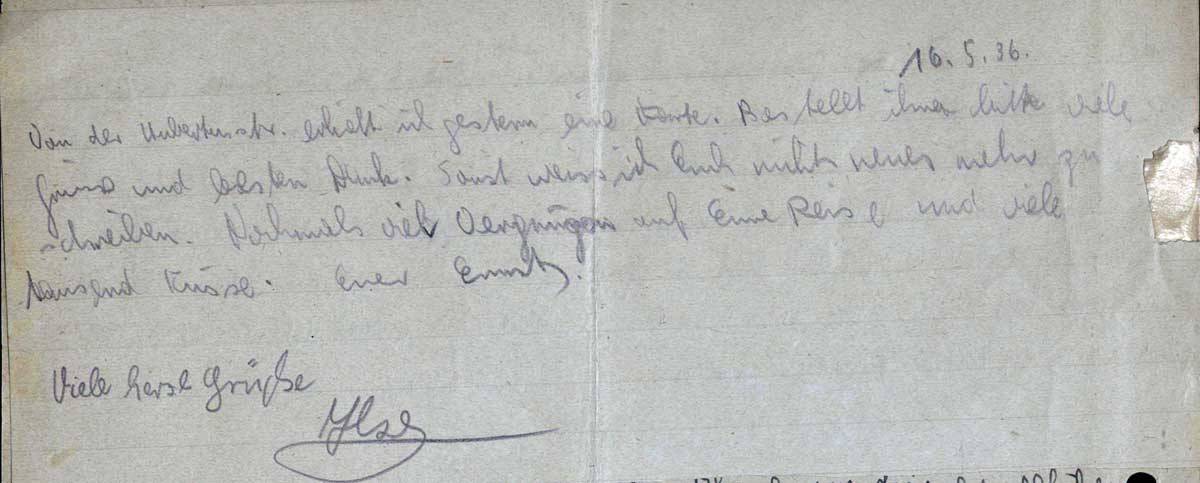 16.5.36.
Von der Hubertusstr. erhielt ich gestern eine Karte. Bestellt ihnen bitte viele
Grüsse und besten Dank. Sonst weiss ich Euch nichts neues mehr zu
schreiben. Nochmals viel Vergnügen auf Eurer Reise und viele
tausend Küsse. Euer Ernst.
Viele herzl Grüße
Ilse